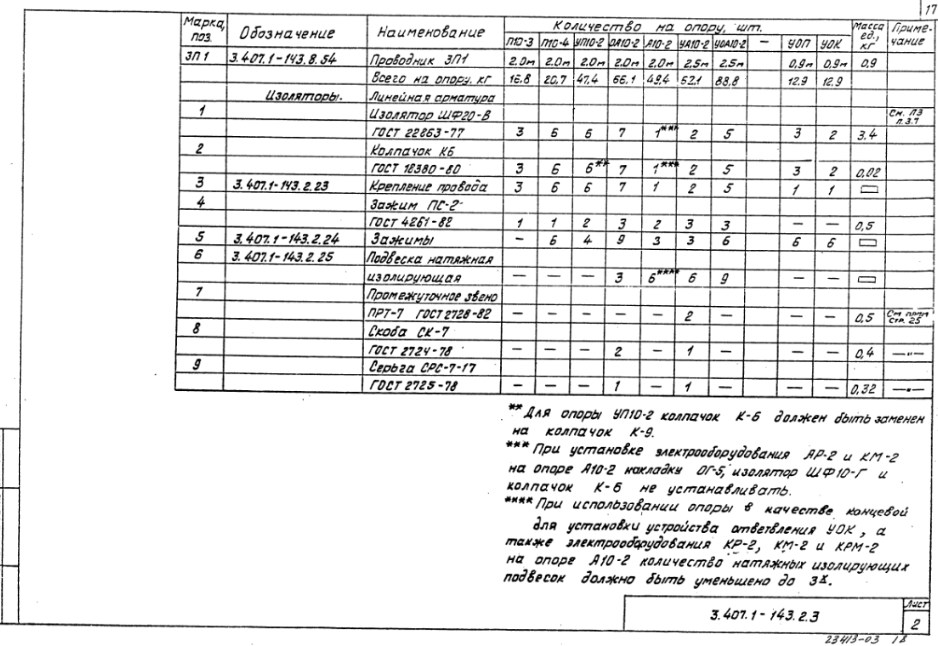 17
Марка, поз. Обозначение Наименование Количество на опору, шт. Масса ед., кг Примечание
П10-3 П10-4 УП10-2 ОА10-2 А10-2 УА10-2 УОА10-2 — УОП УОК
ЗП1 3.407.1-143.8.54 Проводник ЗП1 2.0м 2.0м 2.0м 2.0м 2.0м 2,5м 2.5м 0,9м 0,9м 0,9
Всего на опору, кг 16,8 20,7 47,4 66,1 49,4 52,1 88,8 12.9 12,9
Изоляторы. Линейная арматура
1 Изолятор ШФ20-В См. ПЗ п.3.7
ГОСТ 22863-77 3 6 6 7 1*** 2 5 3 2 3.4
2 Колпачок К6
ГОСТ 18380-80 3 6 6** 7 1*** 2 5 3 2 0,02
3 3.407.1-143.2.23 Крепление провода 3 6 6 7 1 2 5 1 1
4 Зажим ПС-2
ГОСТ 4261-82 1 1 2 3 2 3 3 — — 0,5
5 3.407.1-143.2.24 Зажимы — 6 4 9 3 3 6 6 6
6 3.407.1-143.2.25 Подвеска натяжная
изолирующая — — — 3 6**** 6 9 — —
7 Промежуточное звено
ПРТ-7 ГОСТ 2728-82 — — — — — 2 — — — 0,5 См. прим стр. 25
8 Скоба СК-7
ГОСТ 2724-78 — — — 2 — 1 — — — 0,4 —"—
9 Серьга СРС-7-17
ГОСТ 2725-78 — — — 1 — 1 — — — 0,32 —"—
** Для опоры УП10-2 колпачок К-6 должен быть заменен
на колпачок К-9.
*** При установке электрооборудования ЯР-2 и КМ-2
на опоре А10-2 накладку ОГ-5, изолятор ШФ10-Г и
колпачок К-6 не устанавливать.
**** При использовании опоры в качестве концевой
для установки устройства ответвления УОК, а
также электрооборудования КР-2, КМ-2 и КРМ-2
на опоре А10-2 количество натяжных изолирующих
подвесок должно быть уменьшено до 3х.
3.407.1-143.2.3
Лист
2
23413-03 18